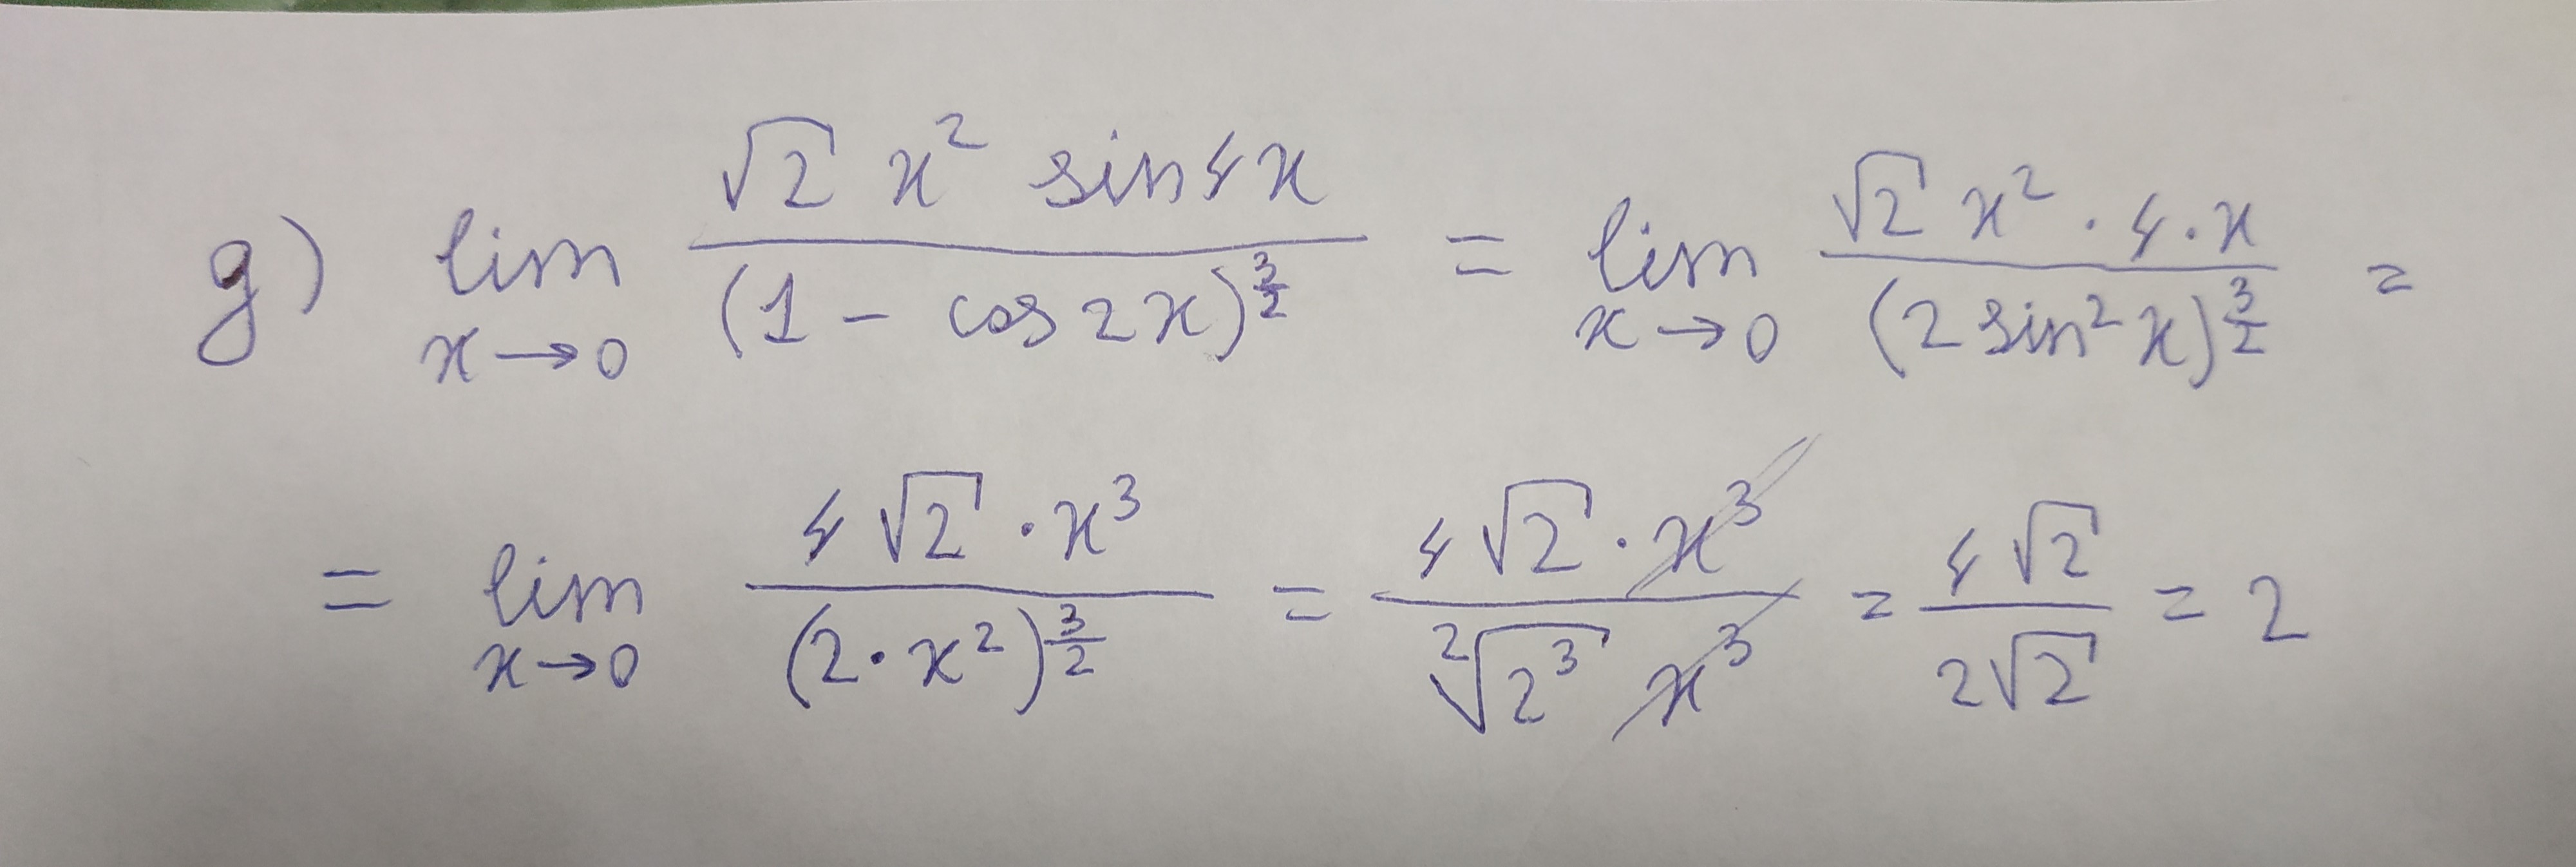 g) lim x→0 √2 x² sin4x / (1 - cos 2x)^(3/2) = lim x→0 √2 x² · 4 · x / (2 sin² x)^(3/2) =
= lim x→0 4√2 · x³ / (2 · x²)^(3/2) = 4√2 · x³ / ²√2³ x³ = 4√2 / 2√2 = 2